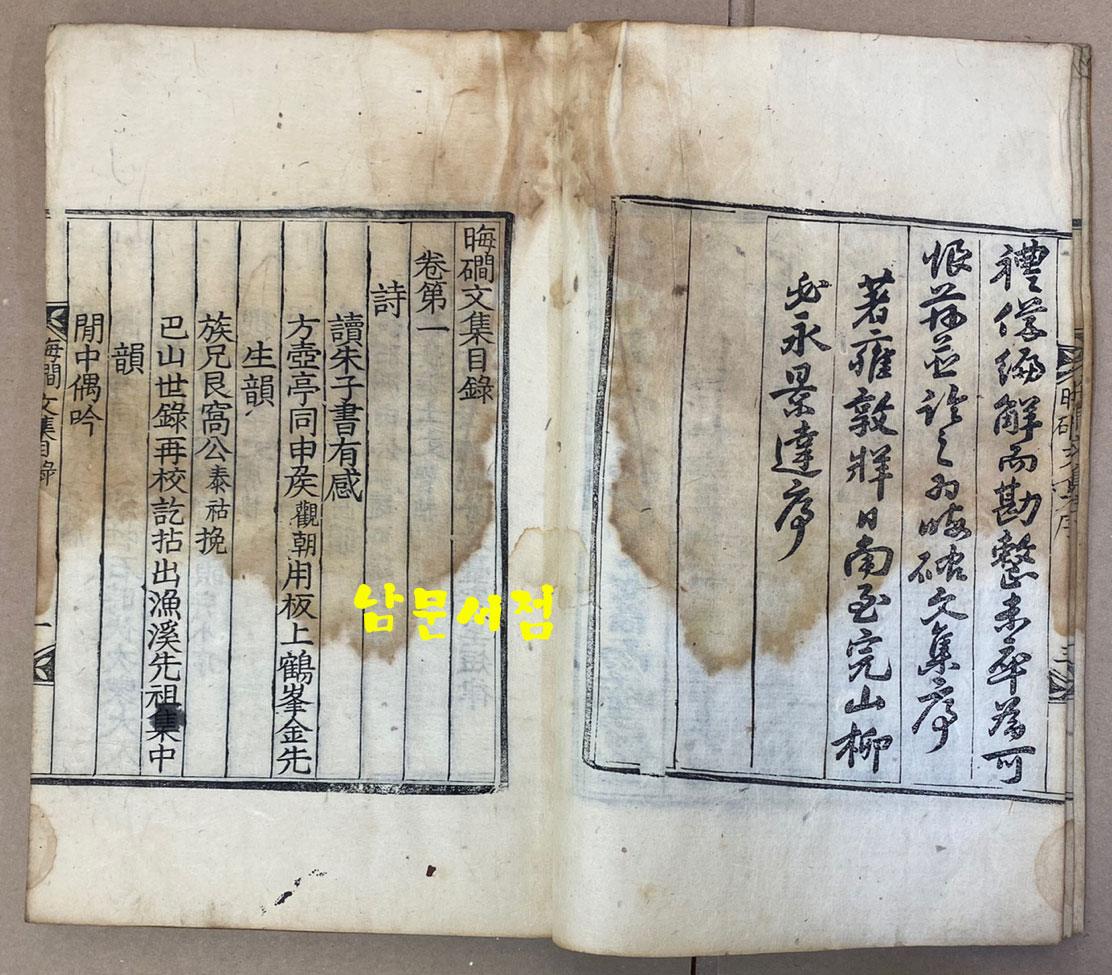 禮儀編解而勘整未卒爲可
恨並之爲晦磵文集序
著雍敦牂日南至完山柳
必永景達序
晦磵文集序 三
晦磵文集目錄
卷第一
詩
讀朱子書有感
方壺亭同申矦觀朝用板上鶴峯金先
生韻
族兄艮窩公泰祜挽
巴山世錄再校訖拈出漁溪先祖集中
韻
閒中偶吟
晦磵文集目錄 一
남문서점